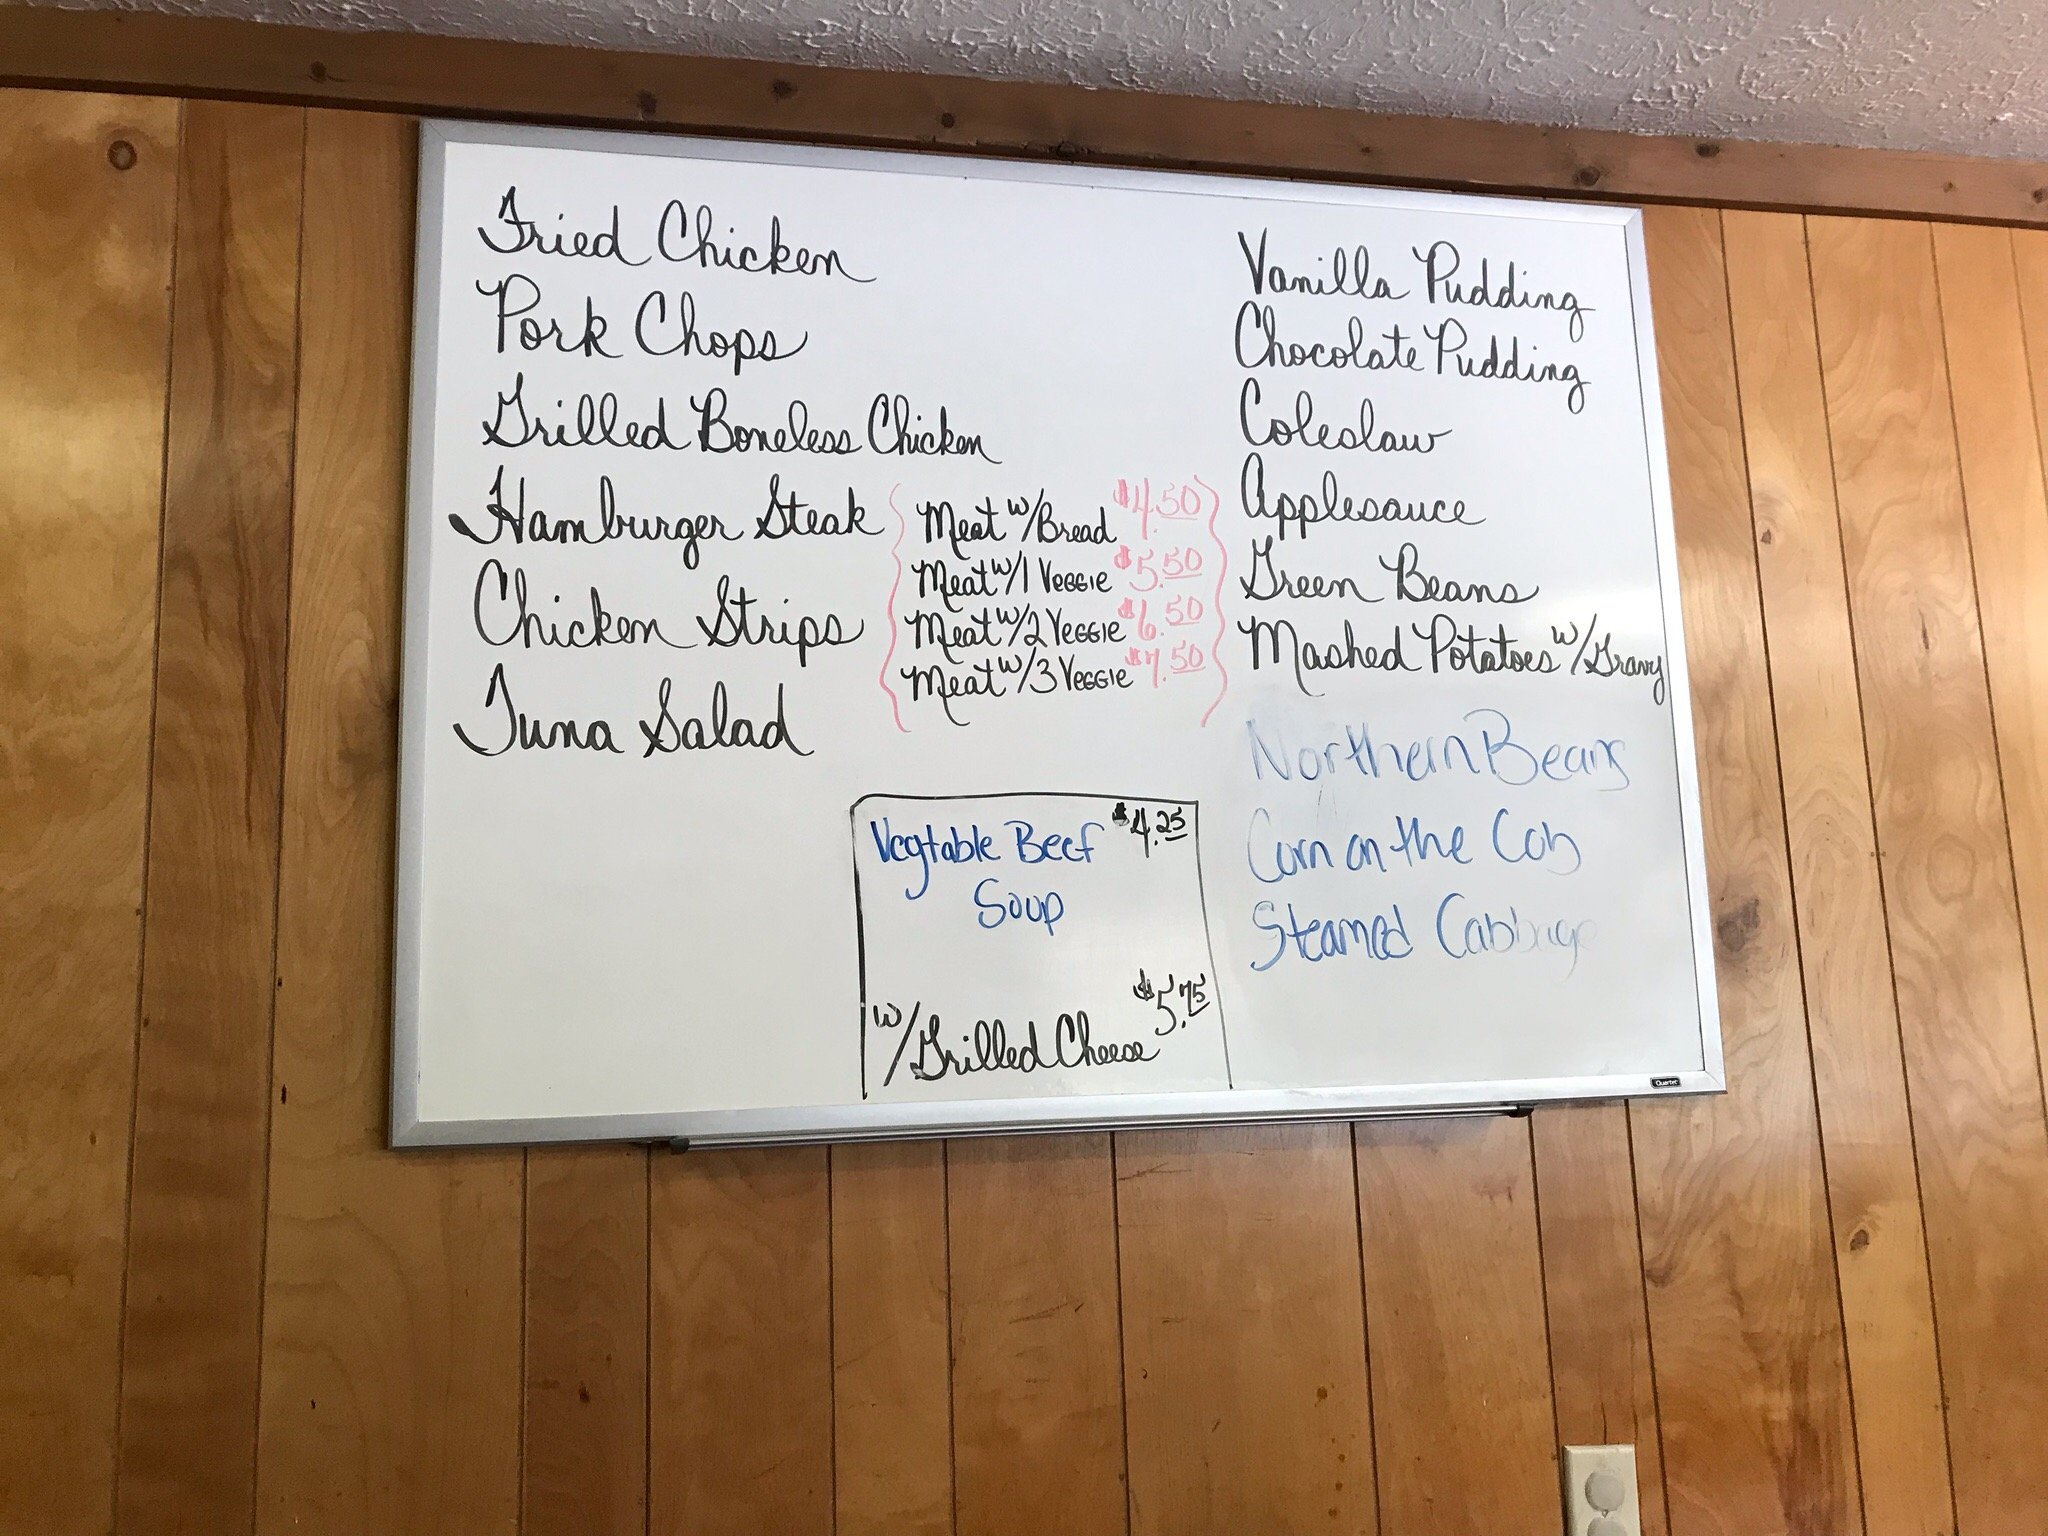 Fried Chicken
Pork Chops
Grilled Boneless Chicken
Hamburger Steak
Chicken Strips
Tuna Salad
Meat w/Bread $4.50
Meat w/1 Veggie $5.50
Meat w/2 Veggie $6.50
Meat w/3 Veggie $7.50
Vegtable Beef $4.25
Soup
w/Grilled Cheese $5.75
Vanilla Pudding
Chocolate Pudding
Coleslaw
Applesauce
Green Beans
Mashed Potatoes w/Gravy
Northern Beans
Corn on the Cob
Steamed Cabbage
Quartet